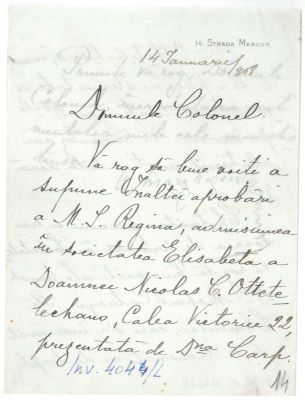 14 STRADA MERCUR
14 Ianuarie 1908
Domnule Colonel.
Vă rog să bine voiți a
supune Înaltei aprobări
a M. S. Regina, admisiunea
în societatea Elisabeta a
Doamnei Nicolas C. Ottete-
lechano, Calea Victoriei 22,
prezentată de Dna Carp.
Inv. 4044/L
14